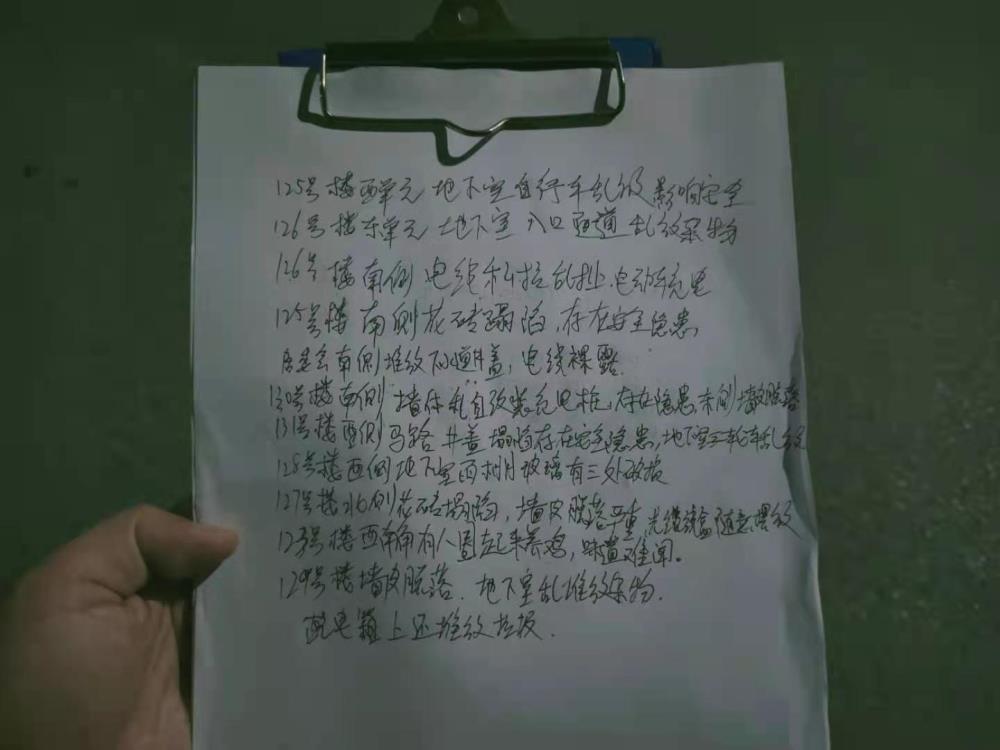 125号楼西单元地下室自行车乱放影响安全
126号楼东单元地下室入口通道乱放杂物
126号楼南侧电线私拉乱扯、电动车充电
125号楼南侧花砖塌陷,存在安全隐患
居委会南侧堆放下水道井盖,电线裸露.
130号楼南侧墙体私自改装充电桩,存在隐患,东侧墙皮脱落
131号楼西侧马路井盖塌陷存在安全隐患,地下室三轮车乱放
128号楼西侧地下室雨搭玻璃有三处破损
127号楼北侧花砖塌陷,墙皮脱落严重,光缆线盒随意摆放
123号楼西南角有人圈起来养鸡,味道难闻。
129号楼墙皮脱落.地下室乱堆放杂物.
配电箱上还堆放垃圾.